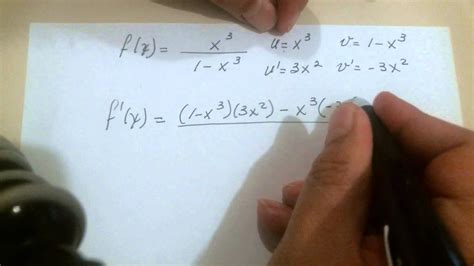 f(x) = x³ / 1 - x³   u = x³   v = 1 - x³
u' = 3x²   v' = -3x²
f'(x) = (1-x³)(3x²) - x³(-